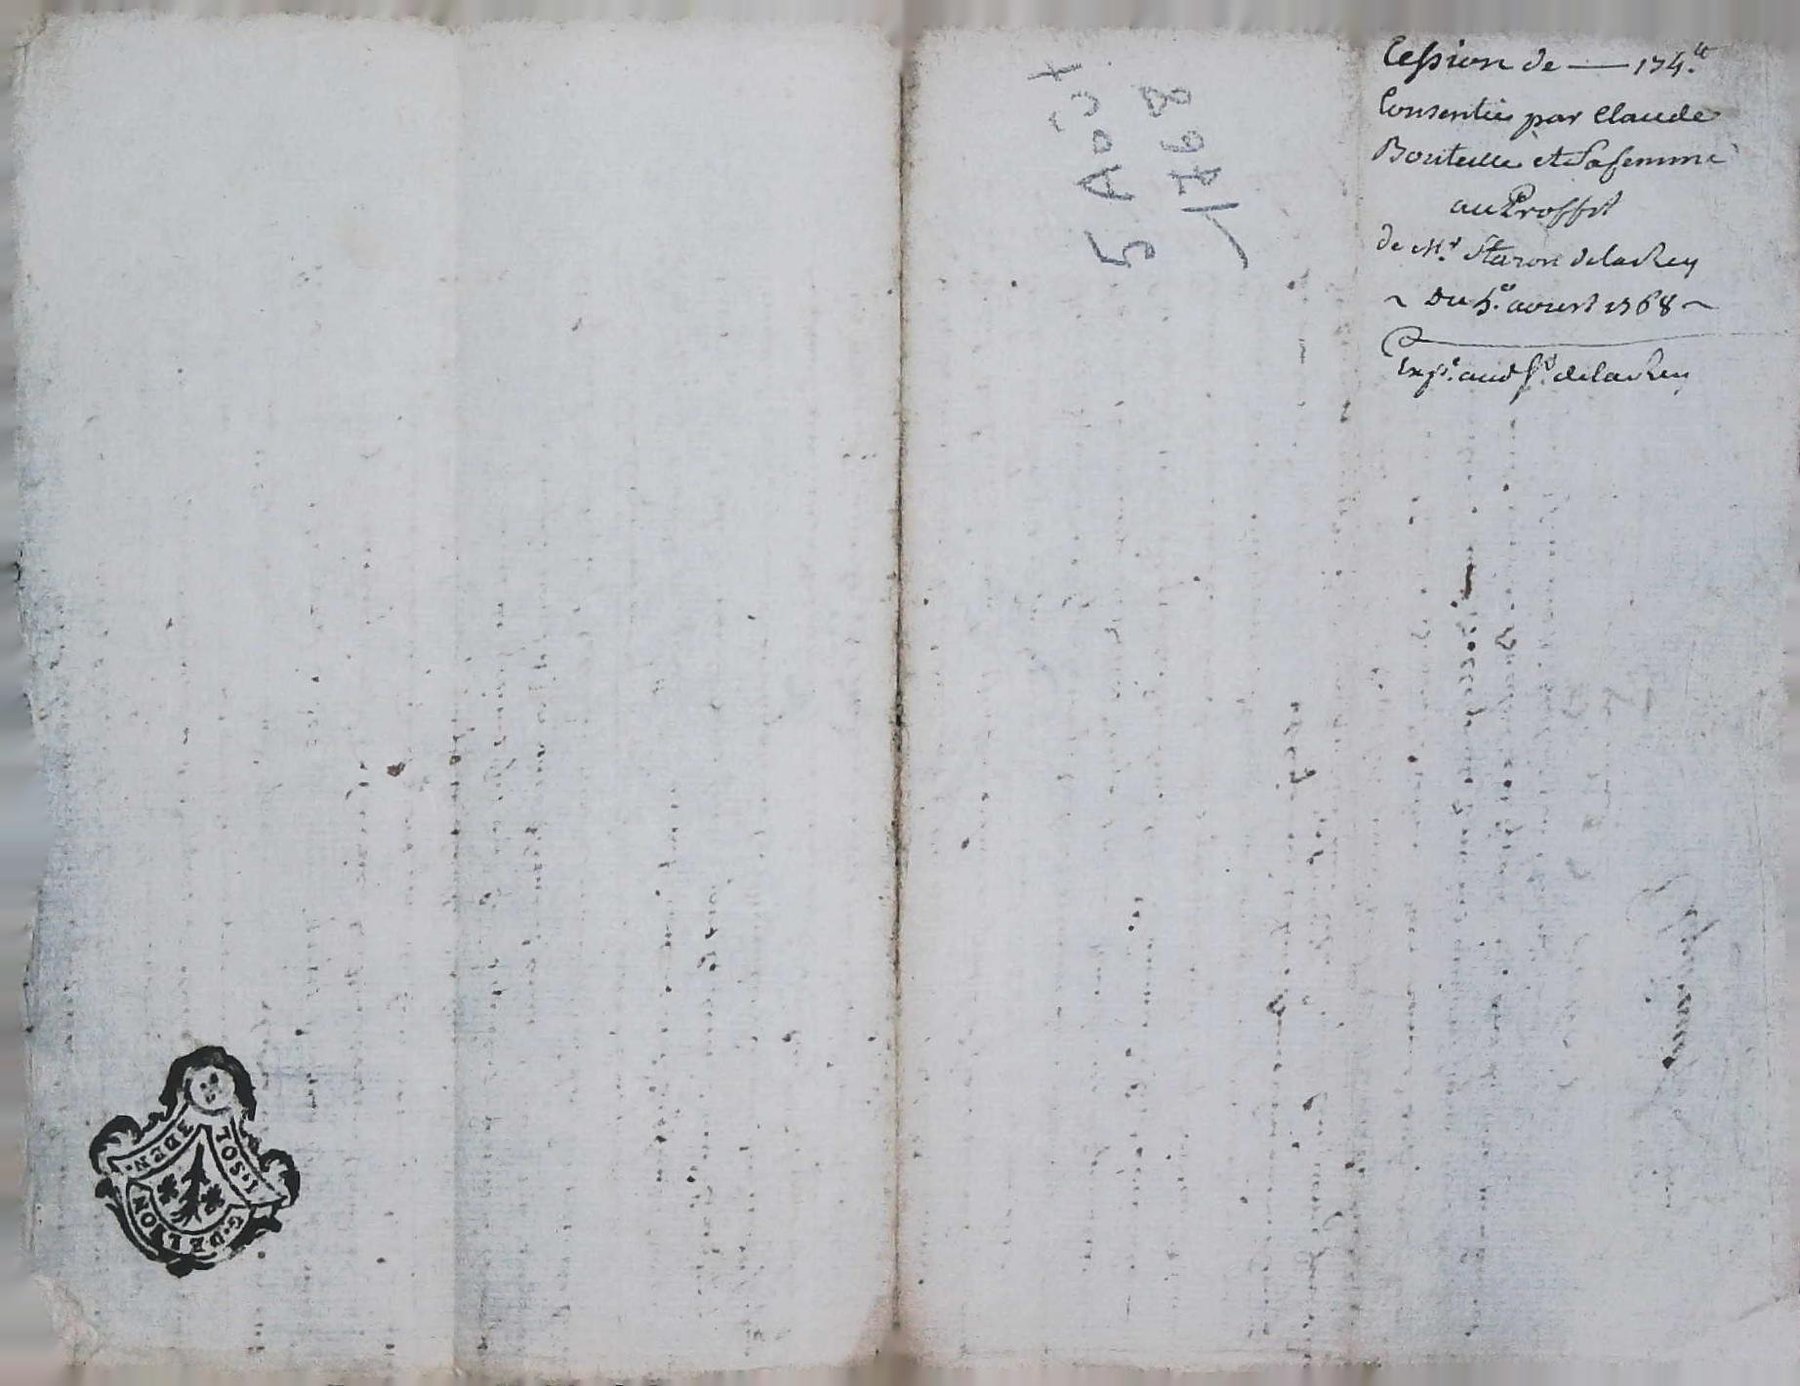 Cession de — 174.lt
Consentie par Claude
Bouteille et Sa femme
au Proffit
de Mr. Staron delaRey
~ Du 5e. aoust 1768 ~
Expe. aud Sr. delaRey
5 Août
1768
3 DEN.
1. SOL
G. DE LYON